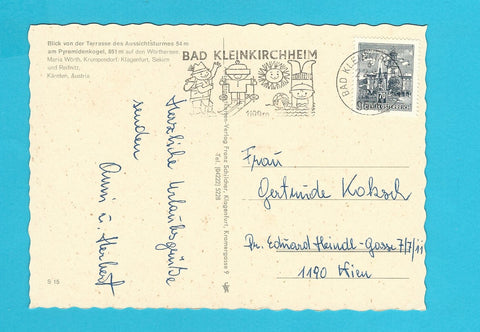 Blick von der Terrasse des Aussichtsturmes 54 m
am Pyramidenkogel, 851 m auf den Wörthersee.
Maria Wörth, Krumpendorf, Klagenfurt, Sekirn
und Reifnitz,
Kärnten, Austria
BAD KLEINKIRCHHEIM
1100m
BAD KLEIN
REPUBLIK ÖSTERREICH
Herzliche Urlaubsgrüße
senden
Anni u. Herbert
Verlag Franz Schilcher, Klagenfurt, Kramergasse 9
Tel. (04222) 5228
Frau
Gertrude Koksch
Dr. Eduard Heindl-Gasse 7/7/11
1190 Wien
S 15